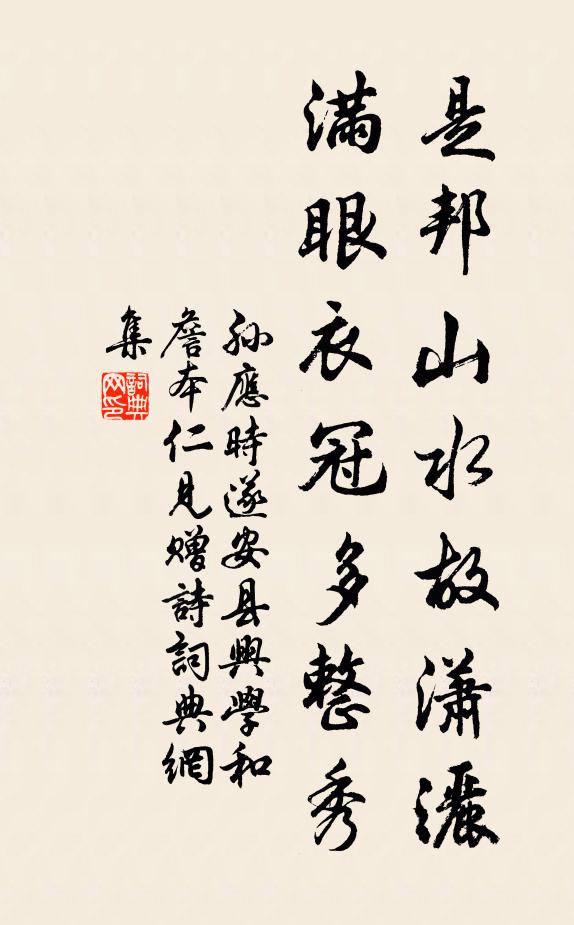 是邦山水故瀟灑
滿眼衣冠多整秀
孫應時遂安縣興學和
詹本仁見贈詩詞典網
集
詞典
网印